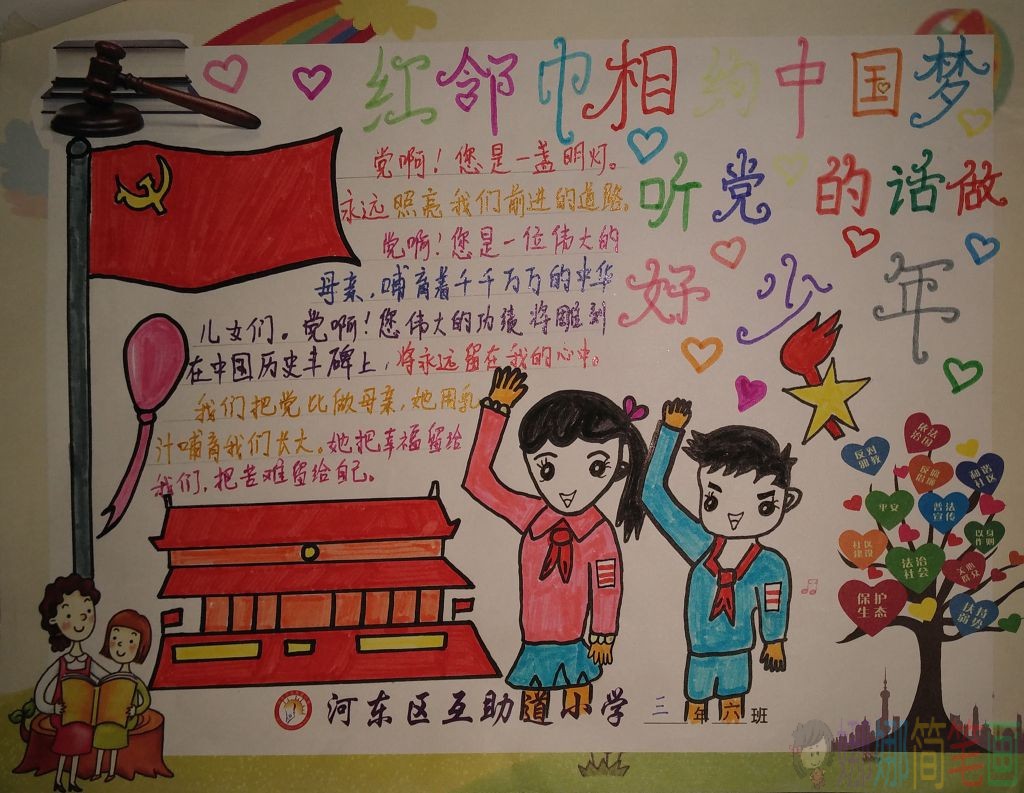 红邻巾相约中国梦
听党的话做
好少年
党啊！您是一盏明灯。
永远照亮我们前进的道路。
党啊！您是一位伟大的
母亲，哺育着千千万万的中华
儿女们。党啊！您伟大的功绩将雕刻
在中国历史丰碑上，将永远留在我的心中。
我们把党比做母亲，她用乳
汁哺育我们长大。她把幸福留给
我们，把苦难留给自己。
依法
治国
反对
邪教
和谐
社区
平安
普法
宣传
以身
作则
社区
建设
法治
社会
关心
群众
保护
生态
扶持
弱势
河东区互助道小学 三年六班
简笔画